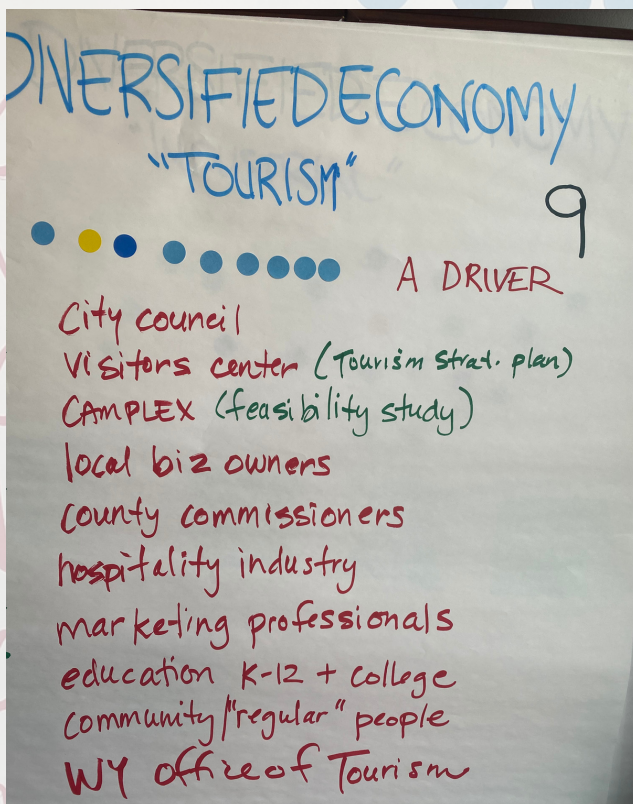 DIVERSIFIED ECONOMY
"TOURISM"
9
A DRIVER
City council
Visitors center (Tourism Strat. plan)
CAMPLEX (feasibility study)
local biz owners
county commissioners
hospitality industry
marketing professionals
education K-12 + college
community/"regular" people
WY office of Tourism